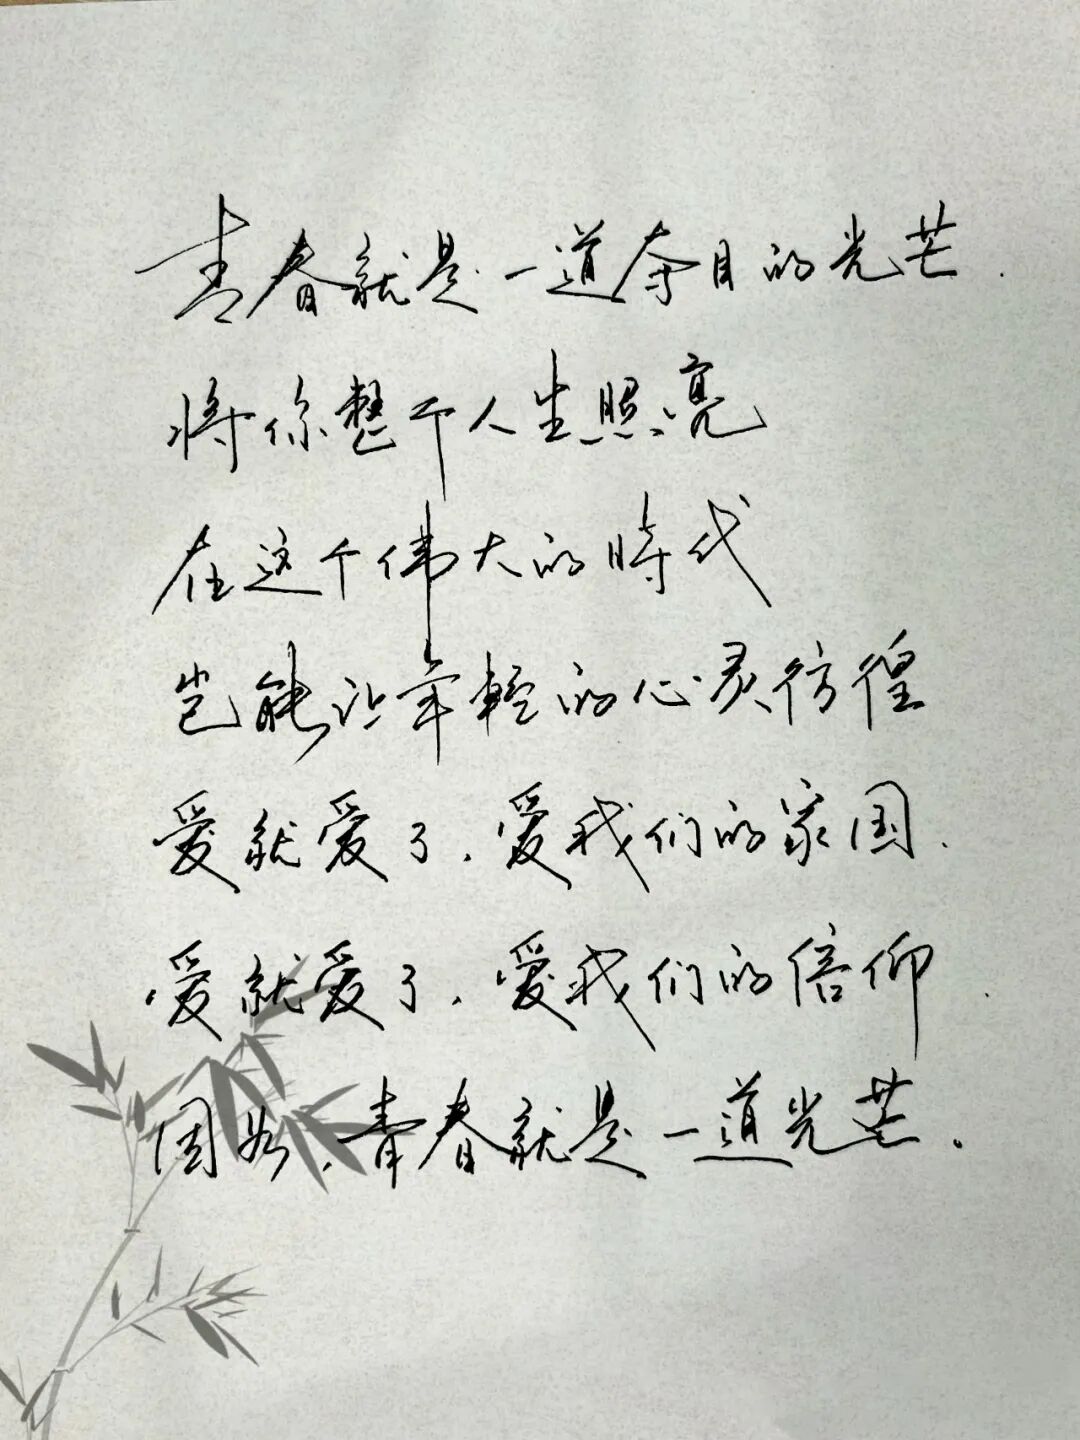 青春就是一道夺目的光芒.
将你整个人生照亮
在这个伟大的時代
岂能让年輕的心灵彷徨
爱就爱了.爱我们的家国.
爱就爱了.爱我们的信仰.
因为,青春就是一道光芒.